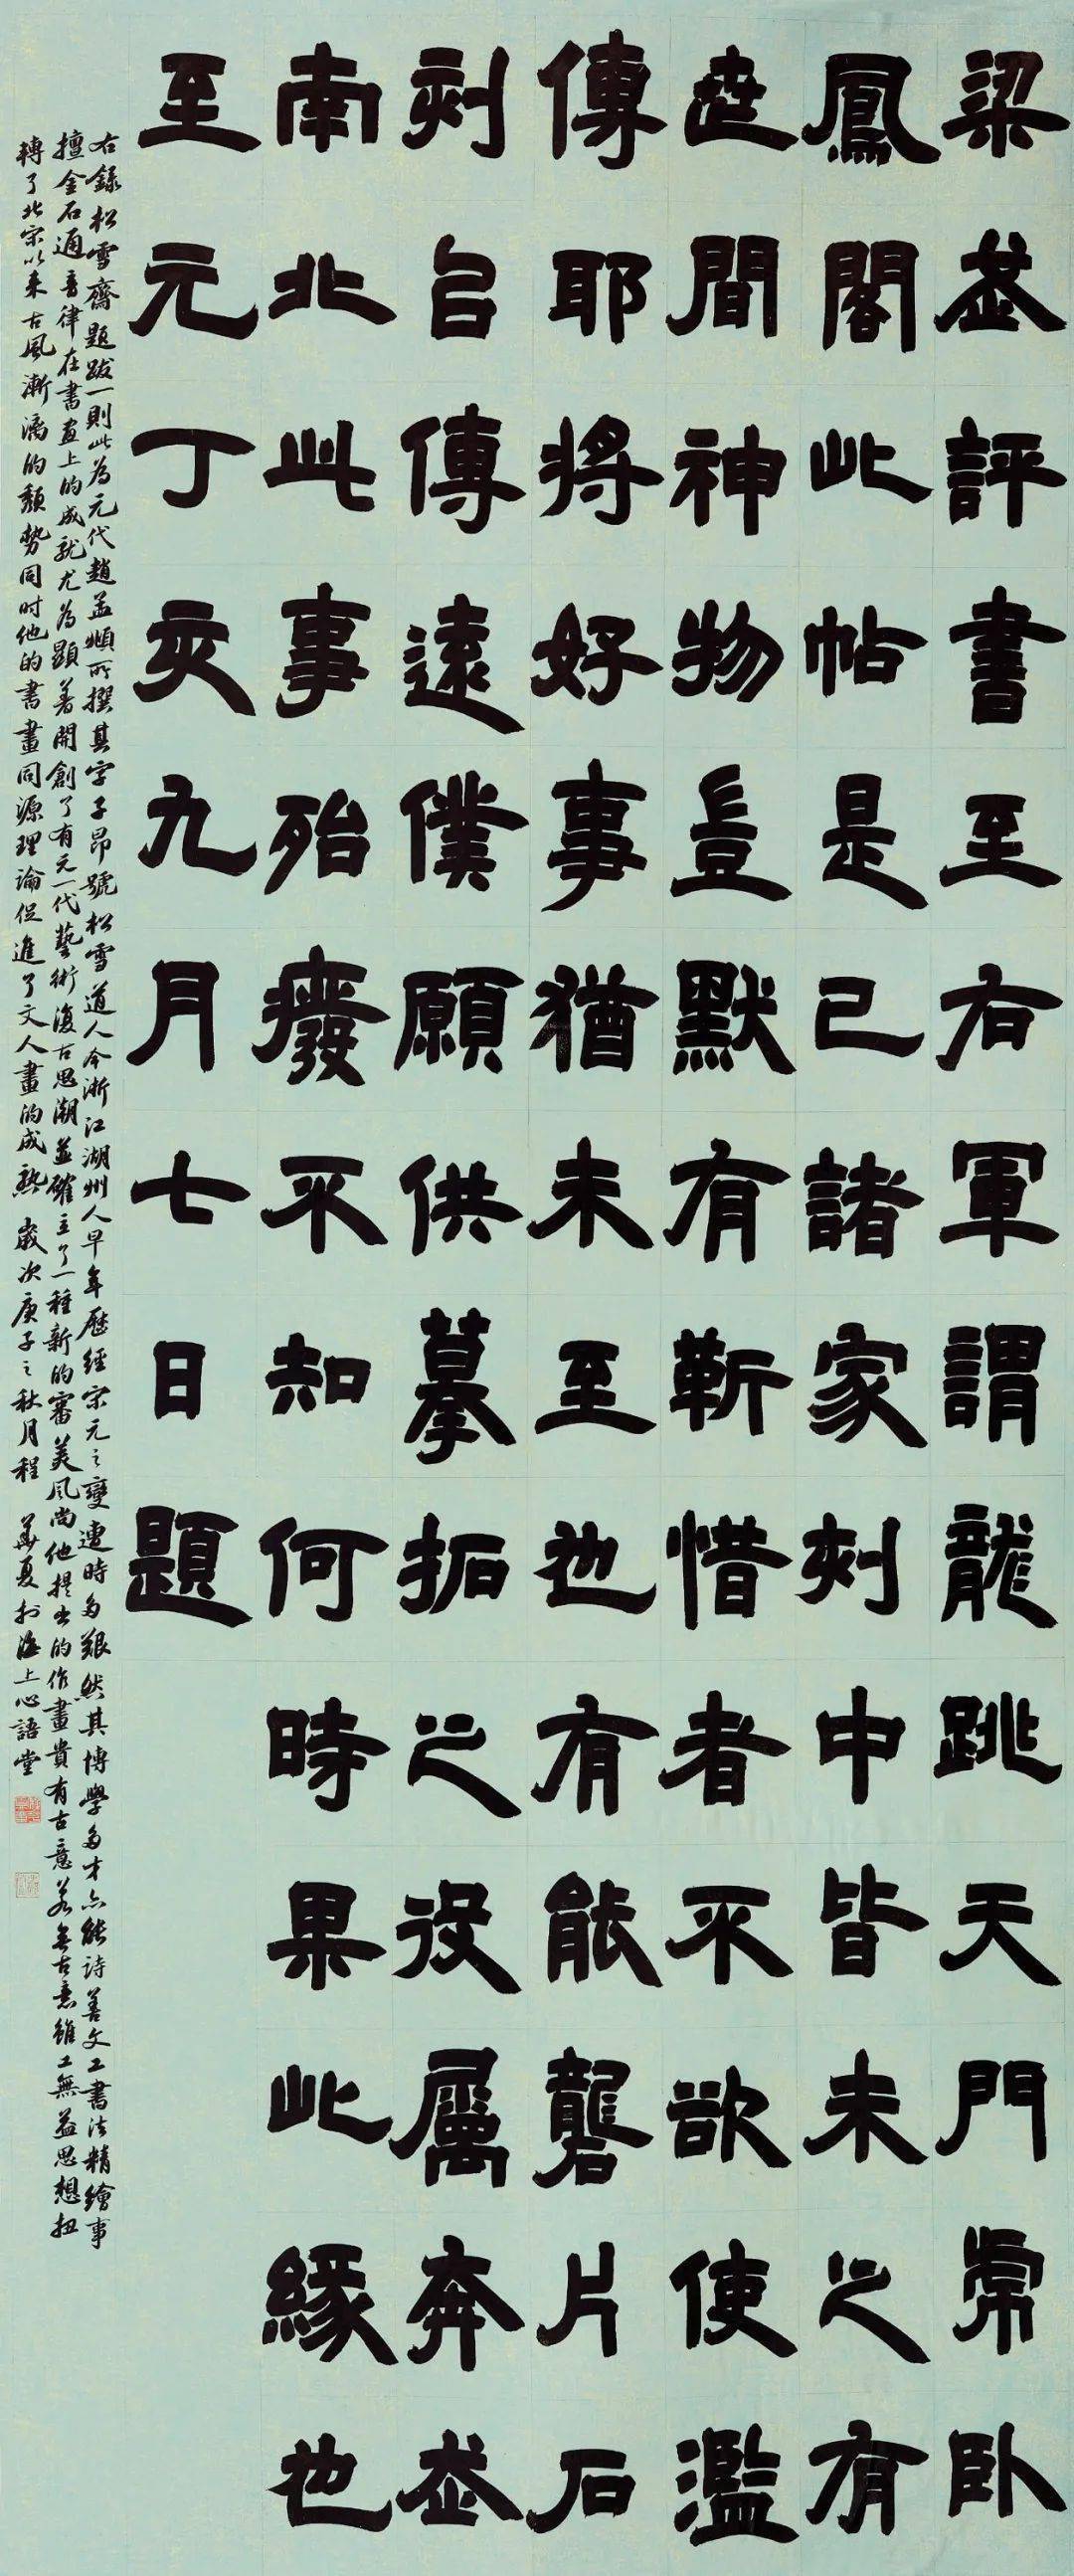 梁武評書至右軍謂龍跳天門常卧
鳳閣此帖是已諸家刻中皆未之有
世間神物豈默有靳惜者不欲使濫
傳耶將好事猶未至也有能礱片石
刻以傳遠僕願供摹拓之役屬奔武
南北此事殆廢不知何時果此緣也
至元丁亥九月七日題
右錄松雪齋題跋一則此為元代趙孟頫所撰其字子昂號松雪道人今浙江湖州人早年歷經宋元之變遭時多艱然其博學多才亦能詩善文工書法精繪事
擅金石通音律在書畫上的成就尤為顯著開創了有元一代藝術復古思潮並確立了一種新的審美風尚他提出的作畫貴有古意若無古意雖工無益思想扭
轉了北宋以來古風漸漓的頹勢同時他的書畫同源理論促進了文人畫的成熟 歲次庚子之秋月程華夏於海上心語堂